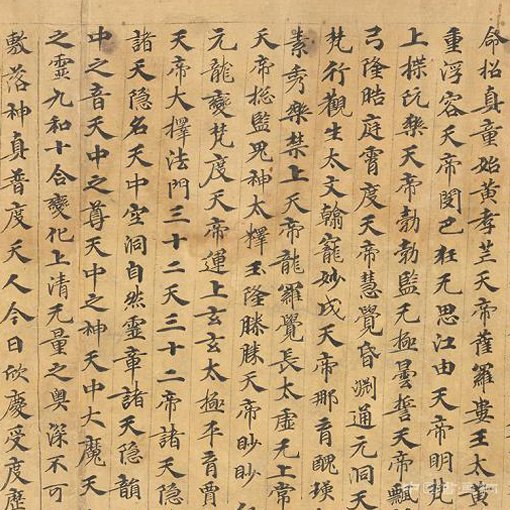 命招真童始黄孝芒天帝薩羅婁王太黄
重浮容天帝閔巴狂无思江由天帝明梵
上揲阮樂天帝勃勃監无極曇誓天帝飄
弓隆晧庭霄度天帝慧覺昏淵通元洞天
梵行觀生太文翰寵妙成天帝那育醜瑛
素秀樂禁上天帝龍羅覺長太虛无上常
天帝揔監鬼神太釋玉隆滕滕天帝眇眇
元龍變梵度天帝運上玄玄太極平育賈
天帝大擇法門三十二天三十二帝諸天隱
諸天隱名天中空洞自然靈章諸天隱韻
中之音天中之尊天中之神天中大魔天
之靈九和十合變化上清无量之奧深不可
敷落神真普度天人今日欣慶受度歷